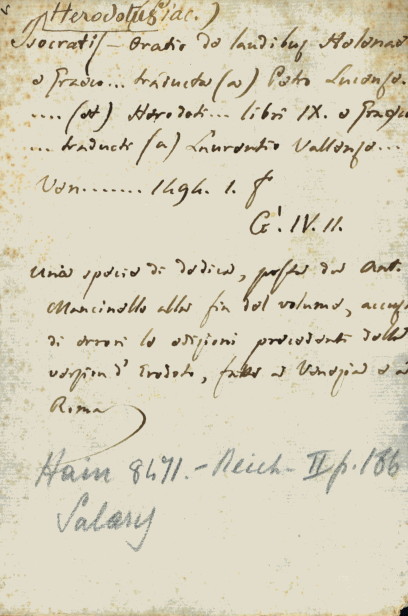 Herodotus (Sac.)
Isocratis – Oratio de laudibus Helenae
e Graeco... traducta (a) Petro Lucensa.
.... (et) Herodoti... libri IX. e Graeco
... traducti (a) Laurentio Vallensa...
Ven....... 1494. 1. f
G. IV. 11.
Una specie di dedica, posta da Ant.
Mancinello alla fin del volume, accusa
di errori le edizioni precedenti della
version d' Erodoto, fatte a Venezia e a
Roma
Hain 8471. – Reich. II p. 186